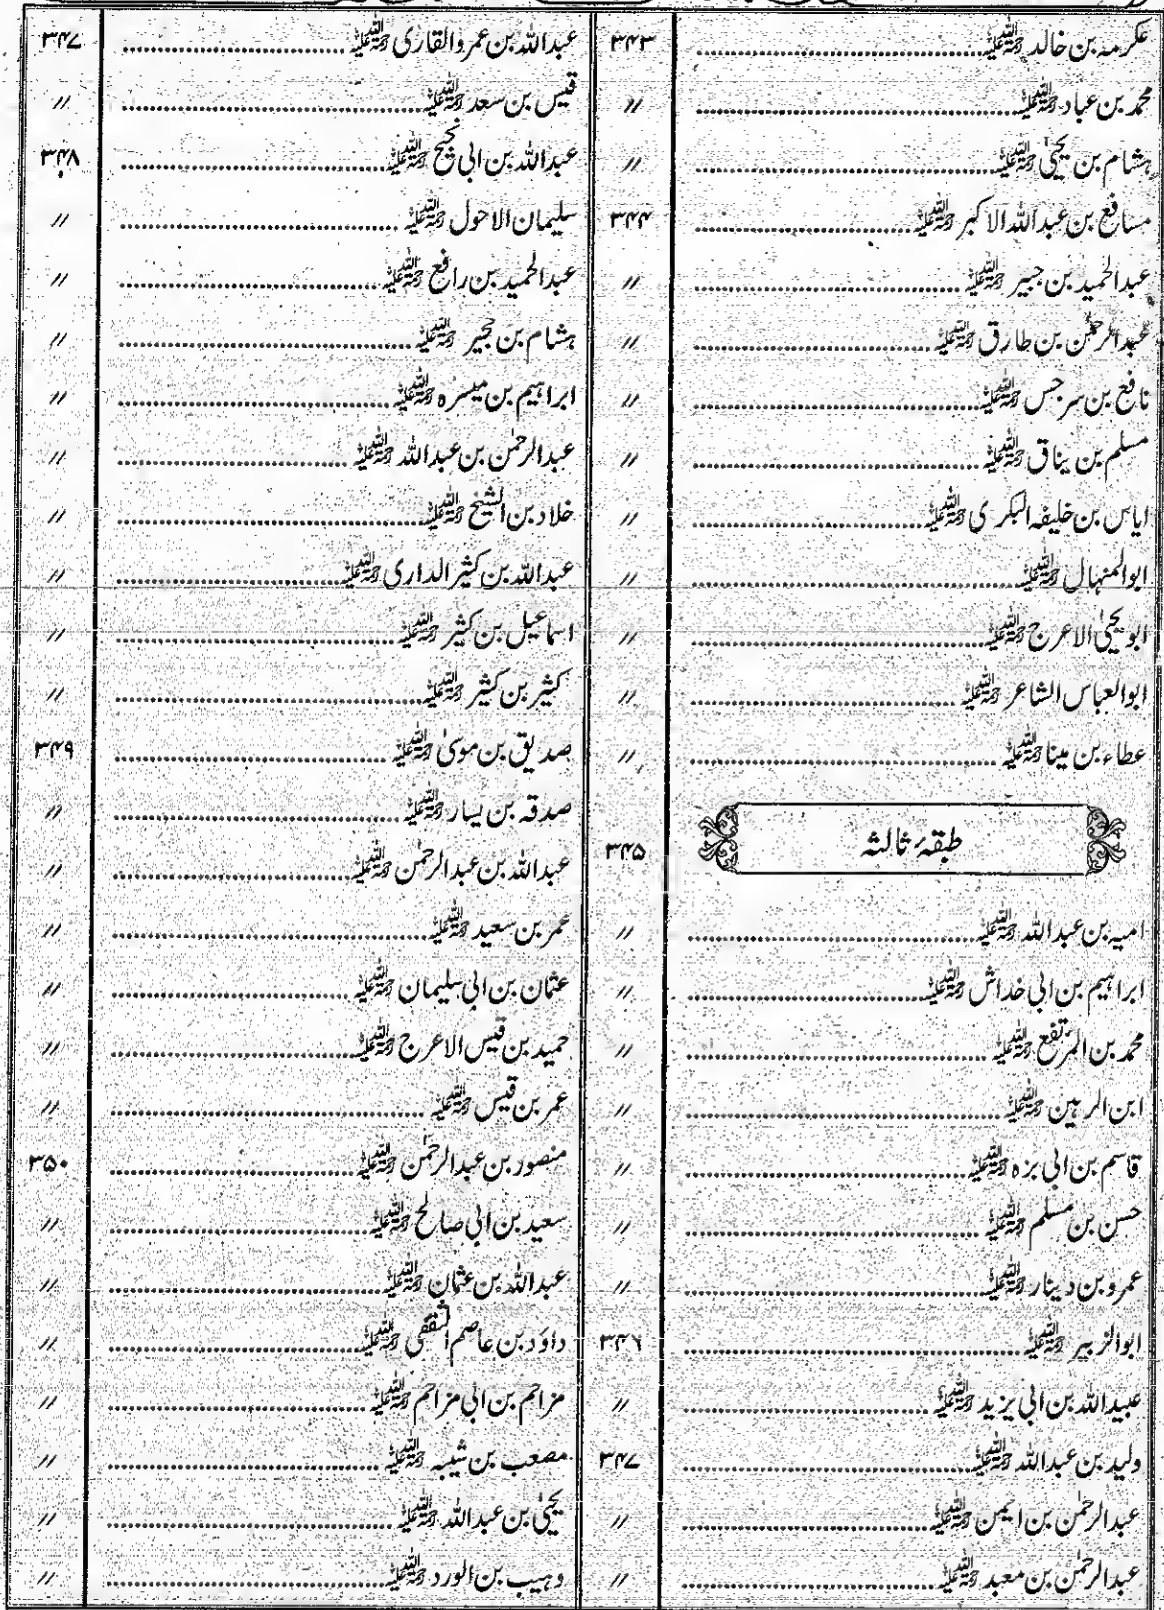 عکرمہ بن خالد رحمۃ اللہ علیہ ۳۴۳
محمد بن عباد رحمۃ اللہ علیہ 〃
ہشام بن یحییٰ رحمۃ اللہ علیہ 〃
مسافع بن عبداللہ الاکبر رحمۃ اللہ علیہ ۳۴۴
عبدالحمید بن جبیر رحمۃ اللہ علیہ 〃
عبدالرحمٰن بن طارق رحمۃ اللہ علیہ 〃
نافع بن سرجس رحمۃ اللہ علیہ 〃
مسلم بن یناق رحمۃ اللہ علیہ 〃
ایاس بن خلیفہ البکری رحمۃ اللہ علیہ 〃
ابوالمنہال رحمۃ اللہ علیہ 〃
ابویحییٰ الاعرج رحمۃ اللہ علیہ 〃
ابوالعباس الشاعر رحمۃ اللہ علیہ 〃
عطاء بن مینا رحمۃ اللہ علیہ 〃
طبقۂ ثالثہ ۳۴۵
امیہ بن عبداللہ رحمۃ اللہ علیہ 〃
ابراہیم بن ابی خداش رحمۃ اللہ علیہ 〃
محمد بن المرتفع رحمۃ اللہ علیہ 〃
ابن الرہین رحمۃ اللہ علیہ 〃
قاسم بن ابی بزہ رحمۃ اللہ علیہ 〃
حسن بن مسلم رحمۃ اللہ علیہ 〃
عمرو بن دینار رحمۃ اللہ علیہ 〃
ابوالزبیر رحمۃ اللہ علیہ ۳۴۶
عبیداللہ بن ابی یزید رحمۃ اللہ علیہ 〃
ولید بن عبداللہ رحمۃ اللہ علیہ ۳۴۷
عبدالرحمٰن بن ایمن رحمۃ اللہ علیہ 〃
عبدالرحمٰن بن معبد رحمۃ اللہ علیہ 〃
عبداللہ بن عمرو القاری رحمۃ اللہ علیہ ۳۴۷
قیس بن سعد رحمۃ اللہ علیہ 〃
عبداللہ بن ابی نجیح رحمۃ اللہ علیہ ۳۴۸
سلیمان الاحول رحمۃ اللہ علیہ 〃
عبدالحمید بن رافع رحمۃ اللہ علیہ 〃
ہشام بن حجیر رحمۃ اللہ علیہ 〃
ابراہیم بن میسرہ رحمۃ اللہ علیہ 〃
عبدالرحمٰن بن عبداللہ رحمۃ اللہ علیہ 〃
خلاد بن الشیخ رحمۃ اللہ علیہ 〃
عبداللہ بن کثیر الداری رحمۃ اللہ علیہ 〃
اسماعیل بن کثیر رحمۃ اللہ علیہ 〃
کثیر بن کثیر رحمۃ اللہ علیہ 〃
صدیق بن موسیٰ رحمۃ اللہ علیہ ۳۴۹
صدقہ بن یسار رحمۃ اللہ علیہ 〃
عبداللہ بن عبدالرحمٰن رحمۃ اللہ علیہ 〃
عمر بن سعید رحمۃ اللہ علیہ 〃
عثمان بن ابی سلیمان رحمۃ اللہ علیہ 〃
حمید بن قیس الاعرج رحمۃ اللہ علیہ 〃
عمر بن قیس رحمۃ اللہ علیہ 〃
منصور بن عبدالرحمٰن رحمۃ اللہ علیہ ۳۵۰
سعید بن ابی صالح رحمۃ اللہ علیہ 〃
عبداللہ بن عثمان رحمۃ اللہ علیہ 〃
داؤد بن عاصم الثقفی رحمۃ اللہ علیہ 〃
مزاحم بن ابی مزاحم رحمۃ اللہ علیہ 〃
مصعب بن شیبہ رحمۃ اللہ علیہ 〃
یحییٰ بن عبداللہ رحمۃ اللہ علیہ 〃
وہیب بن الورد رحمۃ اللہ علیہ 〃